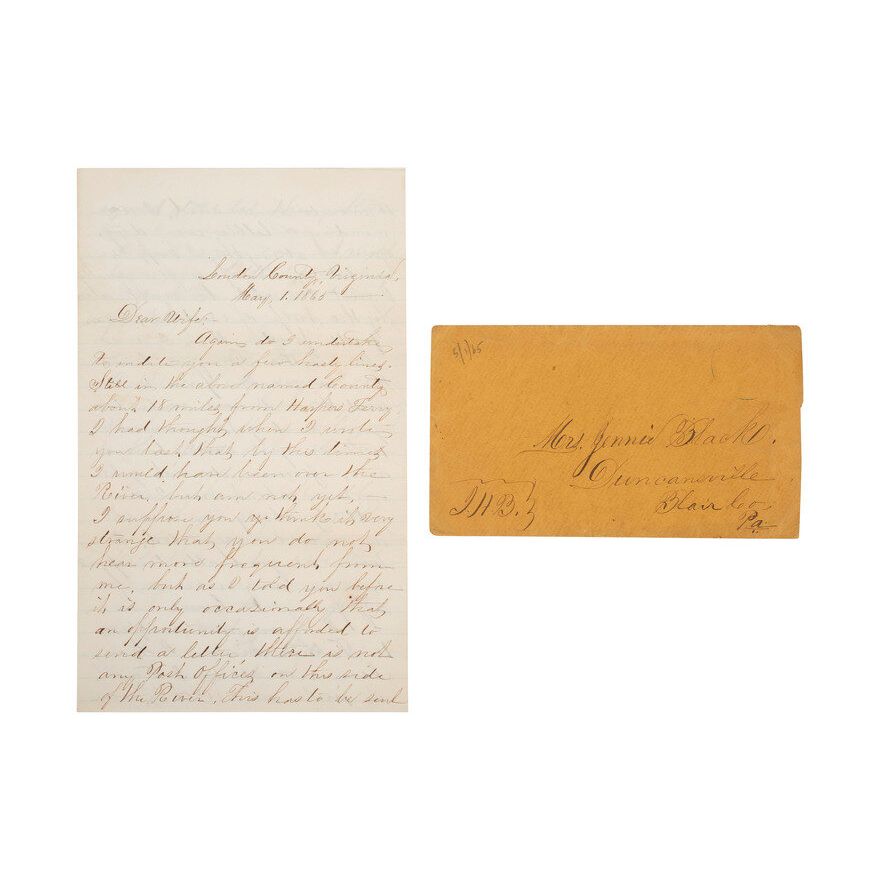 Loudon County, Virginia,
May, 1. 1865
Dear Wife.
Again do I undertake
to indite you a few hasty lines.
Still in the above named County
about 18 miles from Harpers Ferry
I had thought when I wrote
you last that by this time
I would have been over the
River, but am not yet.
I suppose you think it very
strange that you do not
hear more frequent from
me, but as I told you before
it is only occasionally that
an opportunity is afforded to
send a letter there is not
any Post Offices on this side
of the River. This has to be sent
5/1/65
Mrs. Jennie Black.
Duncansville
Blair Co
Pa
J H B.